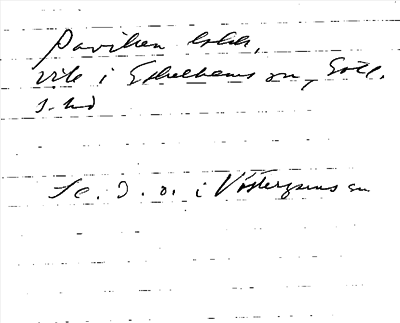 Pavilken
vik i Eskelhems sn, Gotl.
s. hd
Se. D. o. i Västergarns sn